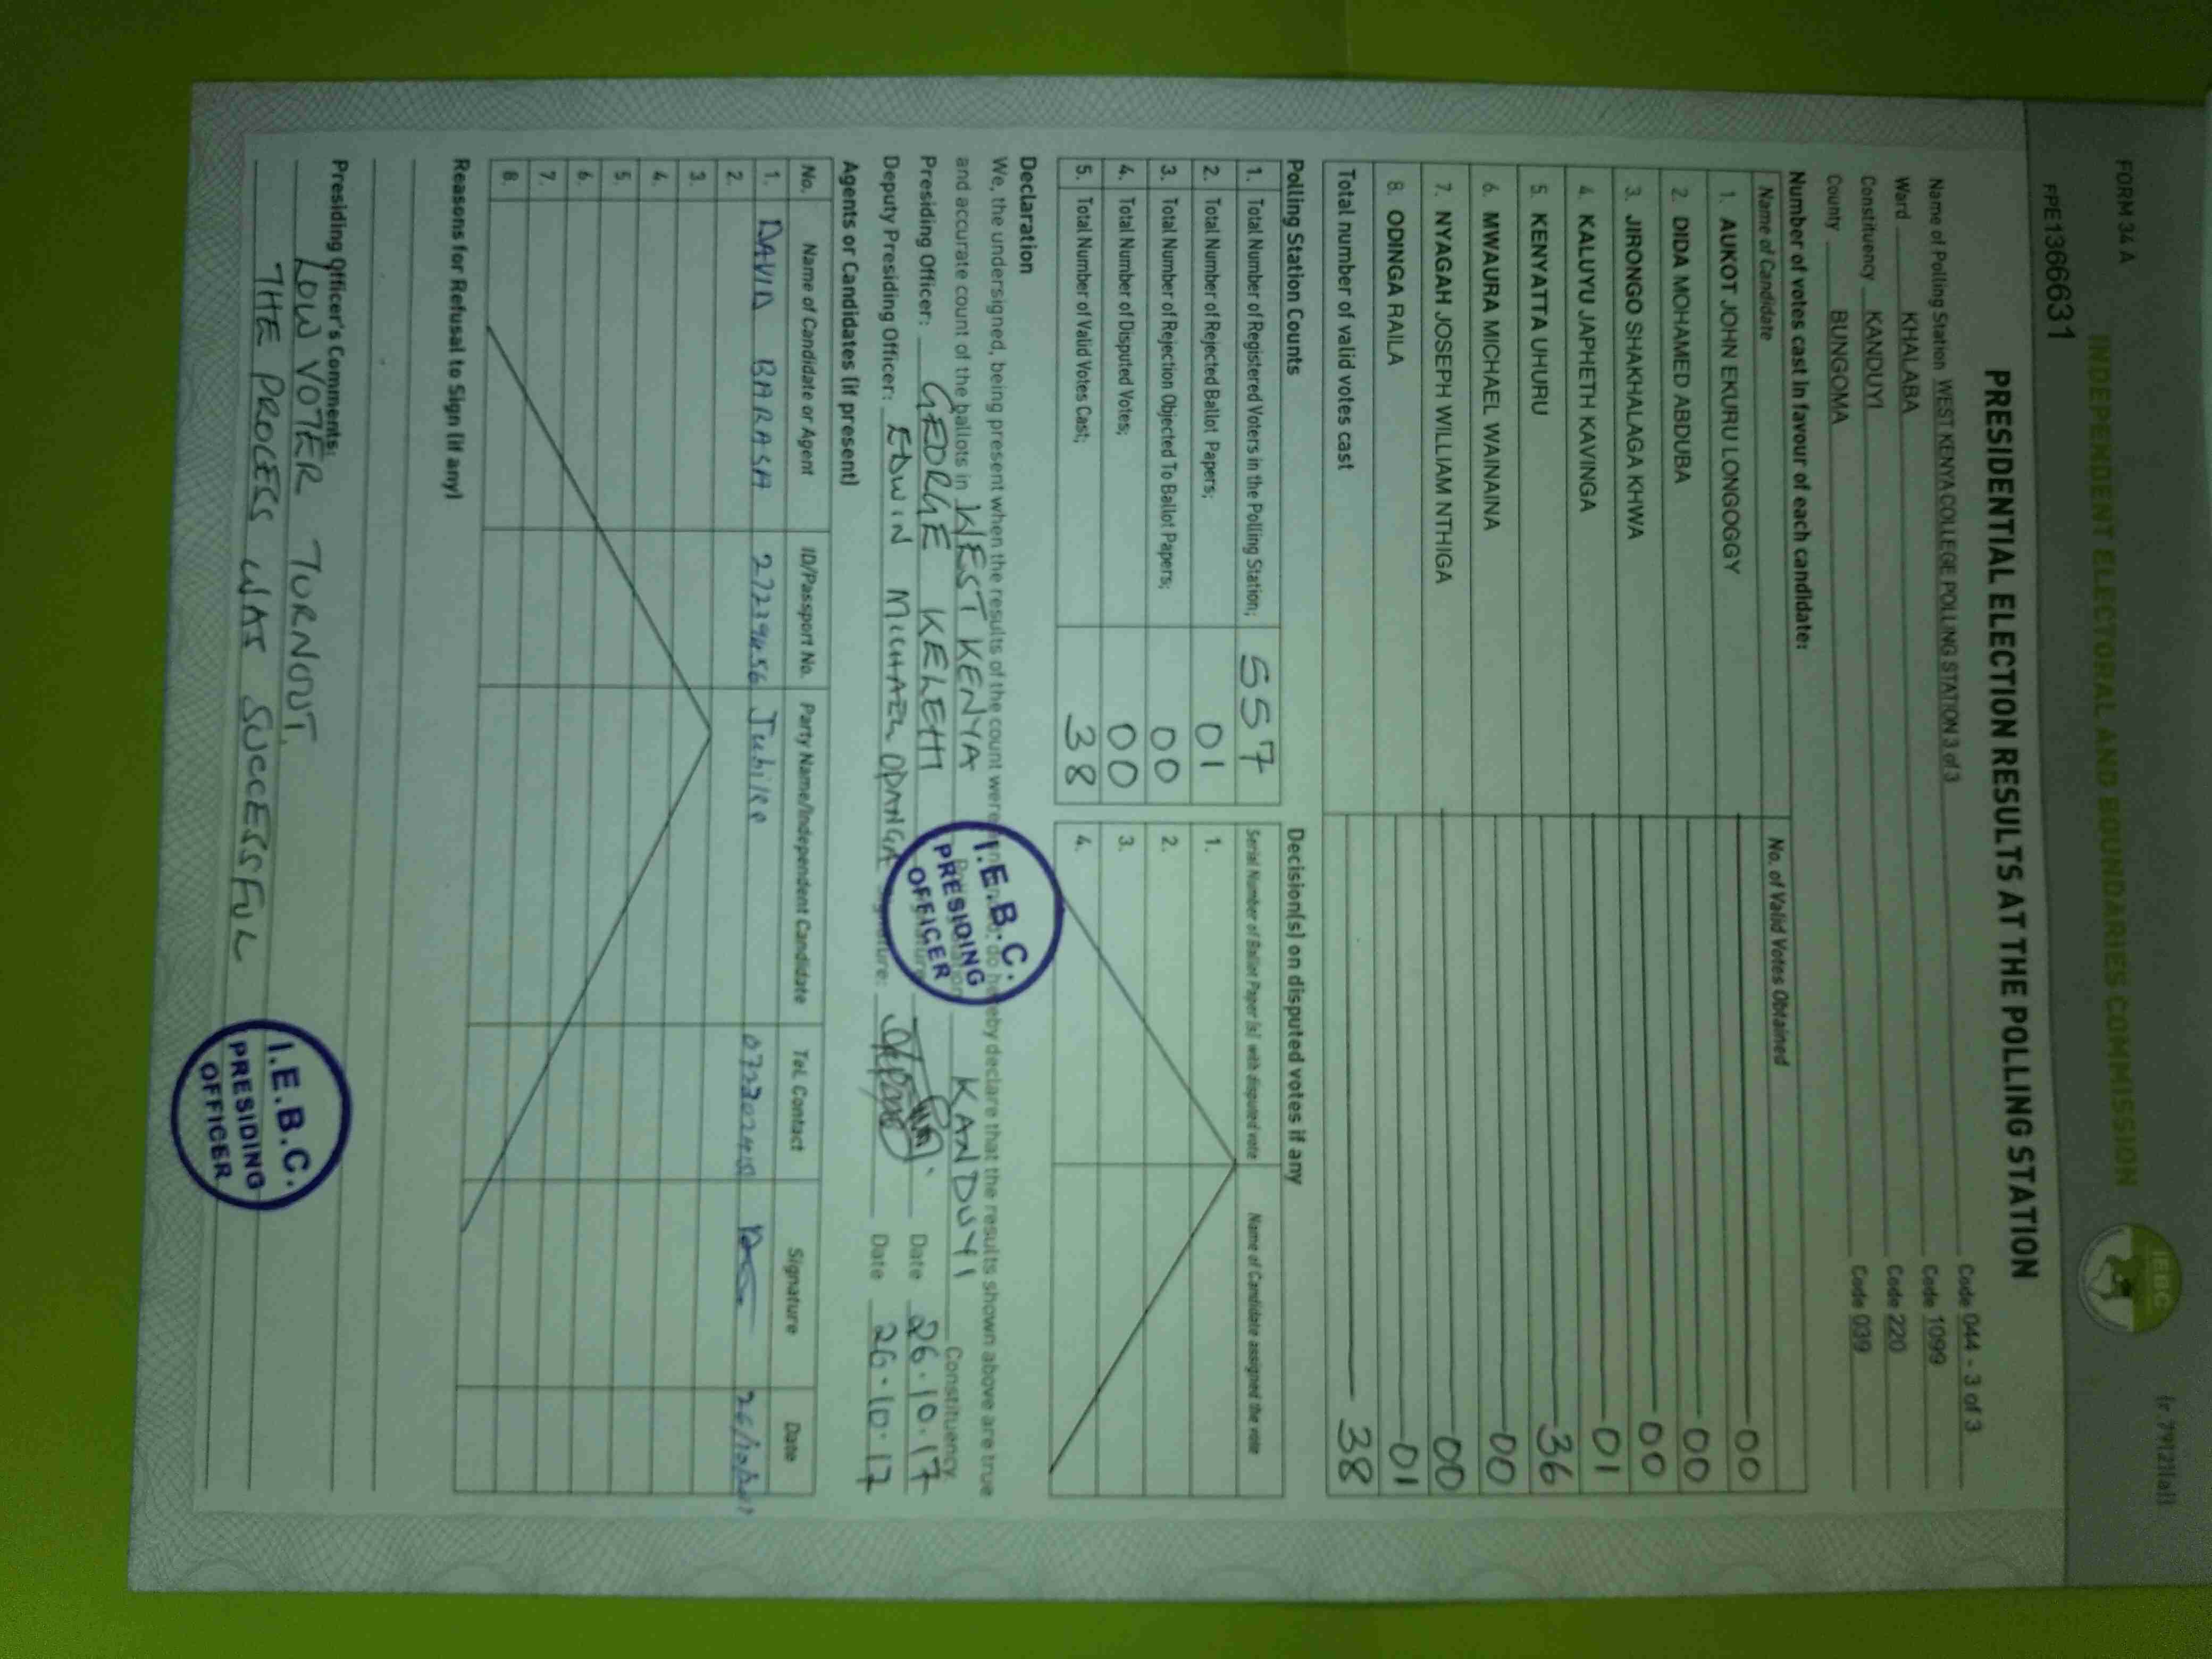 FORM 34 A
(r.79(2)(a))
INDEPENDENT ELECTORAL AND BOUNDARIES COMMISSION
IEBC
PPE1366631
PRESIDENTIAL ELECTION RESULTS AT THE POLLING STATION
Name of Polling Station WEST KENYA COLLEGE POLLING STATION 3 of 3 Code 044 - 3 of 3
Ward KHALABA Code 1099
Constituency KANDUYI Code 220
County BUNGOMA Code 039
Number of votes cast in favour of each candidate:
Name of Candidate No. of Valid Votes Obtained
1. AUKOT JOHN EKURU LONGOGGY 00
2. DIDA MOHAMED ABDUBA 00
3. JIRONGO SHAKHALAGA KHWA 00
4. KALUYU JAPHETH KAVINGA 01
5. KENYATTA UHURU 36
6. MWAURA MICHAEL WAINAINA 00
7. NYAGAH JOSEPH WILLIAM NTHIGA 00
8. ODINGA RAILA 01
Total number of valid votes cast 38
Polling Station Counts
1. Total Number of Registered Voters in the Polling Station; 557
2. Total Number of Rejected Ballot Papers; 01
3. Total Number of Rejection Objected To Ballot Papers; 00
4. Total Number of Disputed Votes; 00
5. Total Number of Valid Votes Cast; 38
Decision(s) on disputed votes if any
Serial Number of Ballot Paper (s) with disputed vote Name of Candidate assigned the vote
1.
2.
3.
4.
Declaration
We, the undersigned, being present when the results of the count were do hereby declare that the results shown above are true
and accurate count of the ballots in WEST KENYA KANDUYI Constituency
Presiding Officer: GEORGE KELETI Date 26.10.17
Deputy Presiding Officer: EDWIN MICHAEL ODANGA Signature: Date 26.10.17
I.E.B.C.
PRESIDING
OFFICER
Agents or Candidates (if present)
No. Name of Candidate or Agent ID/Passport No. Party Name/Independent Candidate Tel. Contact Signature Date
1. DAVID BARASA Jubilee
2.
3.
4.
5.
6.
7.
8.
Reasons for Refusal to Sign (if any)
Presiding Officer's Comments:
LOW VOTER TURNOUT.
THE PROCESS WAS SUCCESSFUL
I.E.B.C.
PRESIDING
OFFICER